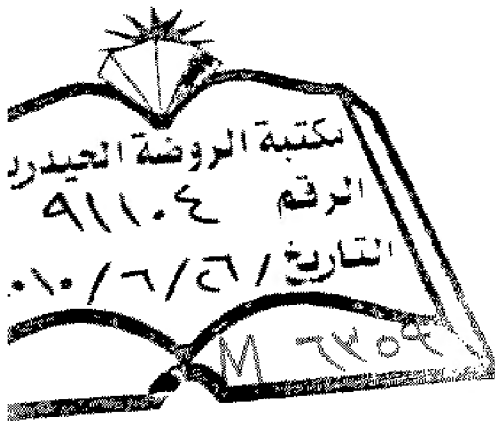 مكتبة الروضة الحيدر
الرقم ٩١١٠٤
التاريخ / ٢٦ / ٦ / ٠١٠
M ٦٣٥٩